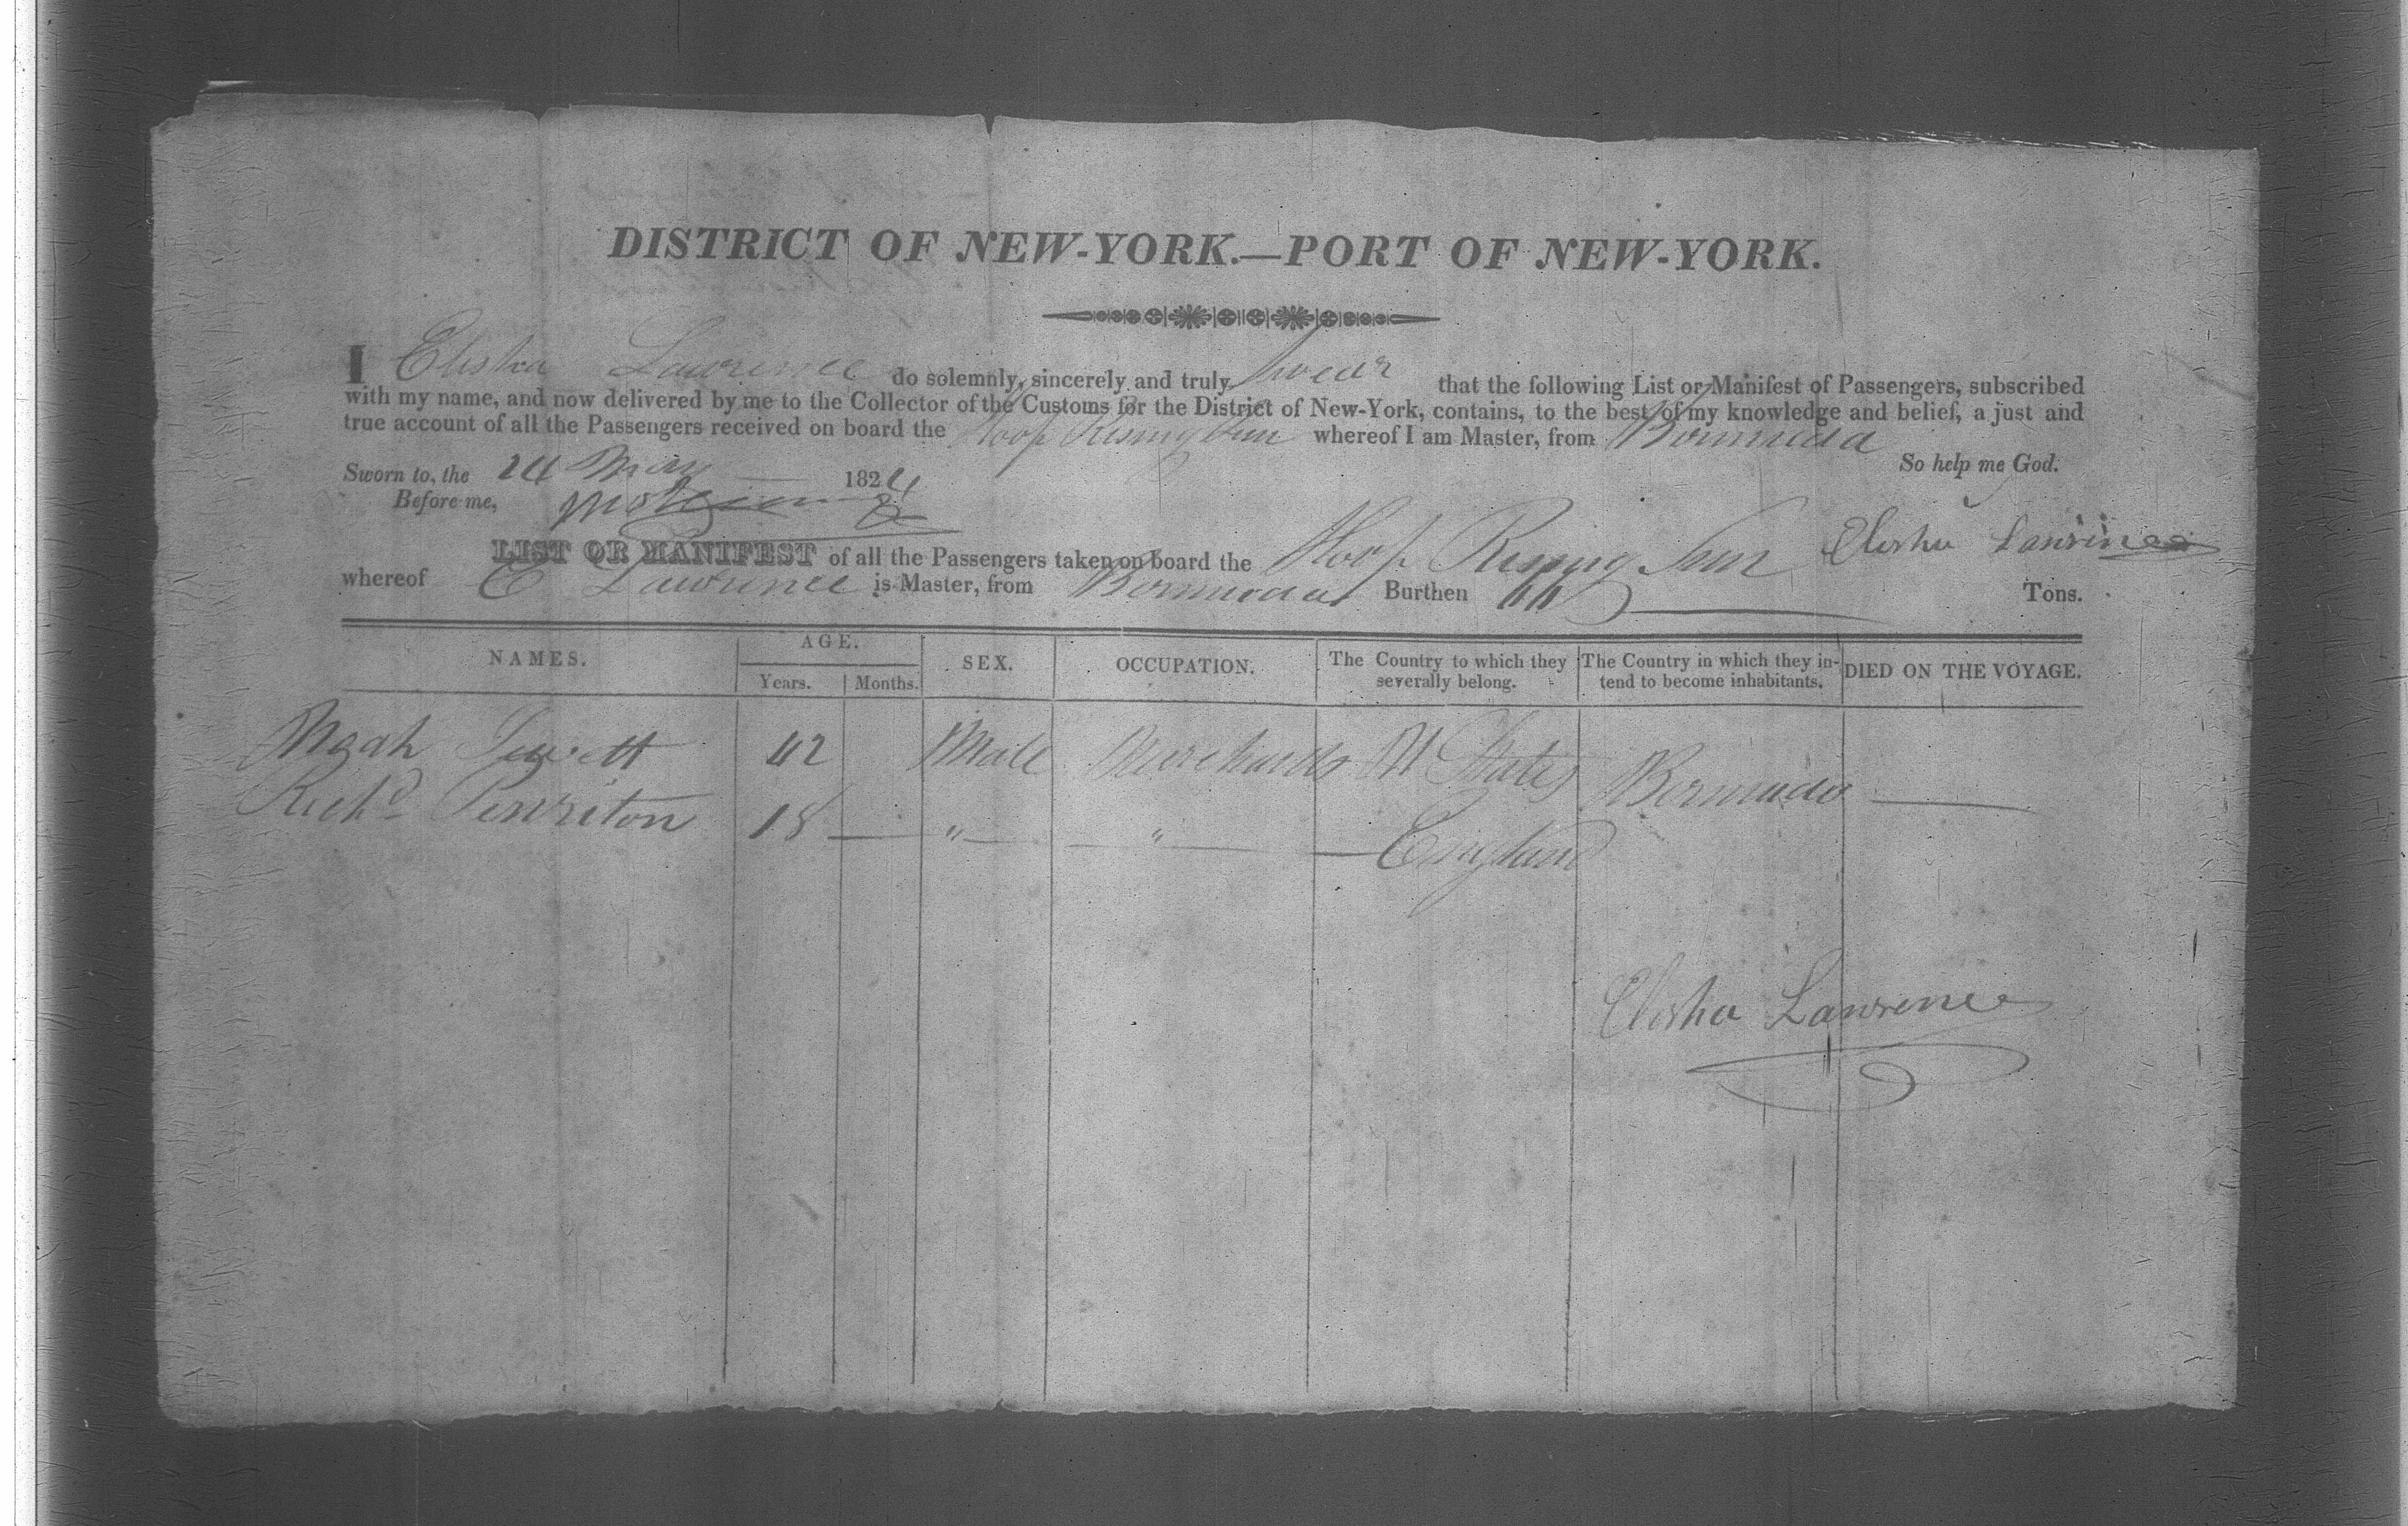 DISTRICT OF NEW-YORK.—PORT OF NEW-YORK.
I Elisha Lawrence do solemnly, sincerely and truly swear that the following List or Manifest of Passengers, subscribed
with my name, and now delivered by me to the Collector of the Customs for the District of New-York, contains, to the best of my knowledge and belief, a just and
true account of all the Passengers received on board the Sloop Rising Sun whereof I am Master, from Bermuda
So help me God.
Sworn to, the 24 May 1824
Before me,
Elisha Lawrence
LIST OR MANIFEST of all the Passengers taken on board the Sloop Rising Sun
whereof E Lawrence is Master, from Bermuda Burthen Tons.
NAMES. AGE. Years. Months. SEX. OCCUPATION. The Country to which they severally belong. The Country in which they intend to become inhabitants. DIED ON THE VOYAGE.
42 Male Merchants U States Bermuda —
Richd Penriton 18 — " — — " — — England
Elisha Lawrence